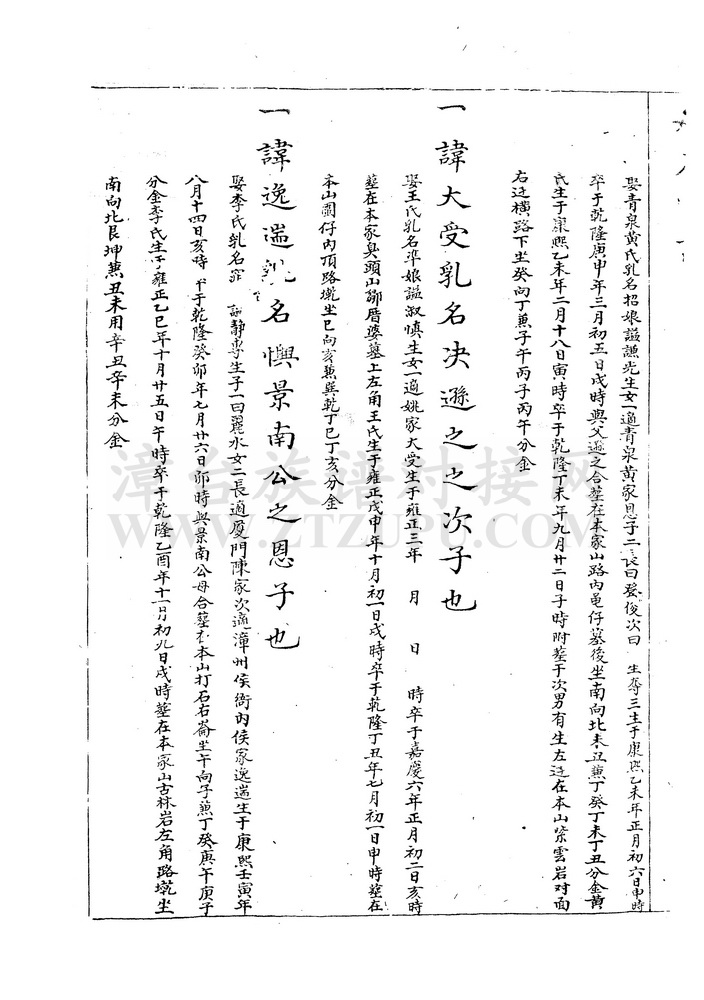 娶青泉黃氏乳名招娘諡謙光生女一適青泉黃家恩子二長曰發俊次曰 生 三生于康熙乙未年正月初六日申時
卒于乾隆庚申年三月初五日戌時與父遜之合塟在本家山路內龜仔墓後坐南向北未丑蕪丁癸丁未丁丑分金黃
氏生于康熙乙未年二月十八日寅時卒于乾隆丁未年九月廿二日子時附塟于次男有生左邊在本山紫雲岩对面
右邊橫路下坐癸向丁蕪子午丙子丙午分金
一諱大受乳名决遜之之次子也
娶王氏乳名準娘諡淑慎生女一適姚家大受生于雍正三年 月 日 時卒于嘉慶六年正月初二日亥時
塟在本家臭頭山 厝婆墓上左角王氏生于雍正戊申年十月初一日戌時卒于乾隆丁丑年七月初一日申時塟在
本山園仔內頂路墘坐巳向亥蕪巽乾丁巳丁亥分金
一諱逸湍乳名懊景南公之恩子也
娶李氏乳名 諡靜專生子一曰麗水女二長適厦門陳家次適漳州侯衙內侯家逸湍生于康熙壬寅年
八月十四日亥時卒于乾隆癸卯年七月廿六日卯時與景南公母合塟在本山打石右崙坐午向子蕪丁癸庚午庚子
分金李氏生于雍正乙巳年十月廿五日午時卒于乾隆乙酉年十一月初九日戌時塟在本家山古林岩左角路墘坐
南向北艮坤蕪丑未用辛丑辛未分金
漳台族譜对接网
WWW.ZTZUPU.COM